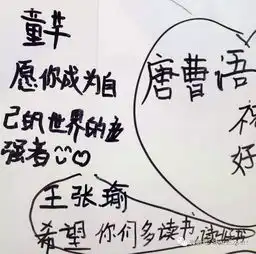 童芊
愿你成为自
己的世界的
强者
唐曹语
好
王张瑜
希望你们多读书